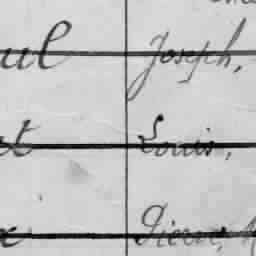 ul Joseph,
t Louis,
Pierre,